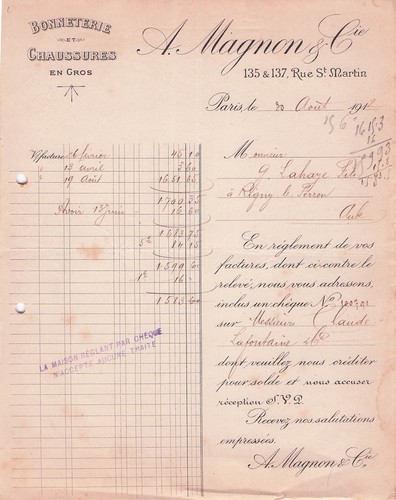 BONNETERIE
ET
CHAUSSURES
EN GROS
A. Magnon & Cie
135 & 137, Rue St Martin
Paris, le 20 Août 1912
Monsieur
G. Lahaye
à Rigny le Ferron
Aube
V/facture février 45 10
" 13 avril 3 60
" 19 Août 1651 65
1700 35
Avoir 16 60
1683 75
5% 84 15
1599 60
1% 16 -
1583 60
En règlement de vos
factures, dont ci-contre le
relevé, nous vous adressons,
inclus un chèque No
sur Messieurs Claude
Lafontaine & Cie
dont veuillez nous créditer
pour solde et nous accuser
réception S.V.P.
Recevez nos salutations
empressées.
A. Magnon & Cie
LA MAISON RÉGLANT PAR CHÈQUE
N'ACCEPTE AUCUNE TRAITE